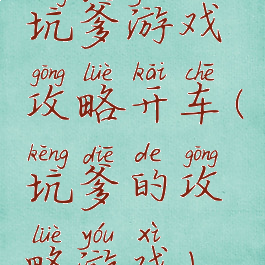 坑爹游戏
gōng lüè kāi chē
攻略开车(
kēng diē de gōng
坑爹的攻
lüè yóu xì
略游戏)